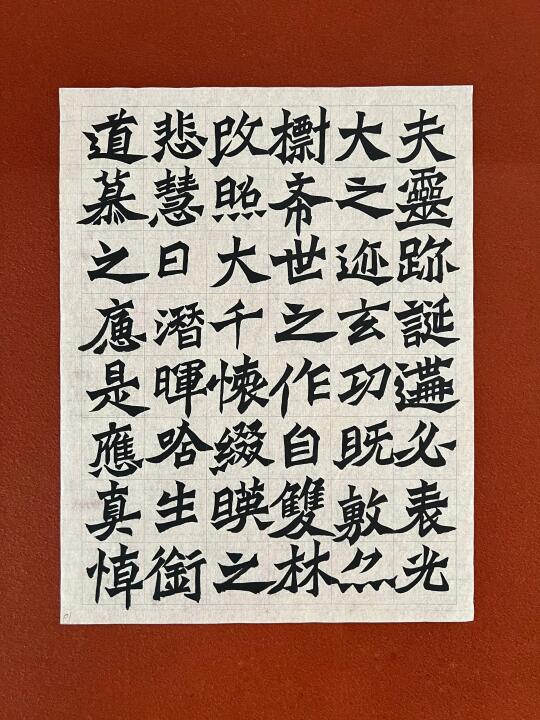 夫靈跡誕遘必表光
大之迹玄功既敷亦
標希世之作自雙林
改照大千懷綴暎之
悲慧日潛暉唅生銜
道慕之悳是應真悼